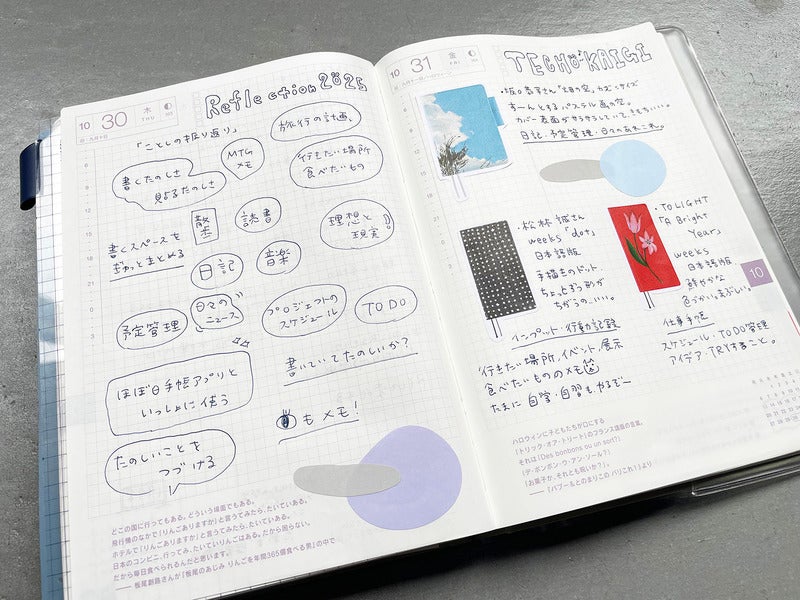 10
30
木
THU
Reflection 2025
「ことしの振り返り」
旅行の計画、
書くたのしさ
見返るたのしさ
MTG
メモ
行きたい場所
食べたいもの
散歩
読書
理想と
現実
書くスペースを
ぎゅっとまとめる
日記
音楽
予定管理
日々の
ニュース
プロジェクトの
スケジュール
TO DO
書いていてたのしいか?
ほぼ日手帳アプリと
いっしょに使う
もメモ!
たのしいことを
つづける
どこの国に行ってもある。どういう場面でもある。
飛行機のなかで「りんごありますか」と言うてみたら、たいていある。
ホテルで「りんごありますか」と言うてみたら、たいていある。
日本のコンビニ、行ってみ、たいていりんごはある。だから困らない。
だから毎日食べられるんだと思います。
──板尾創路さんが『板尾のあじみ りんごを年間365個食べる男』の中で
10
31
金
FRI
TECHO KAIGI
カバー表面がサラサラしていて、きもちいい。
日記・予定管理・日々のあれこれ。
・松林誠さん
weeks「dot」
日本語版
手描きのドット、
ちょっとずつ形が
ちがうの、いい。
・TO LIGHT
「A Bright
Years
weeks
日本語版
鮮やかな
色づかいがまぶしい。
10
インプット・行動記録
行きたい場所、イベント、展示
食べたいもののメモ
たまに自学・自習もやるぞ〜
仕事手帳
スケジュール・TODO管理
アイデア・TRYすること。
ハロウィンに子どもたちが口にする
「トリック・オア・トリート」のフランス語版の言葉。
それは「Des bonbons ou un sort?」
(デ・ボンボン・ウ・アン・ソール?)
「お菓子か、それとも呪いか?」。
──『パブーもとのまりこの パリこれ!』より